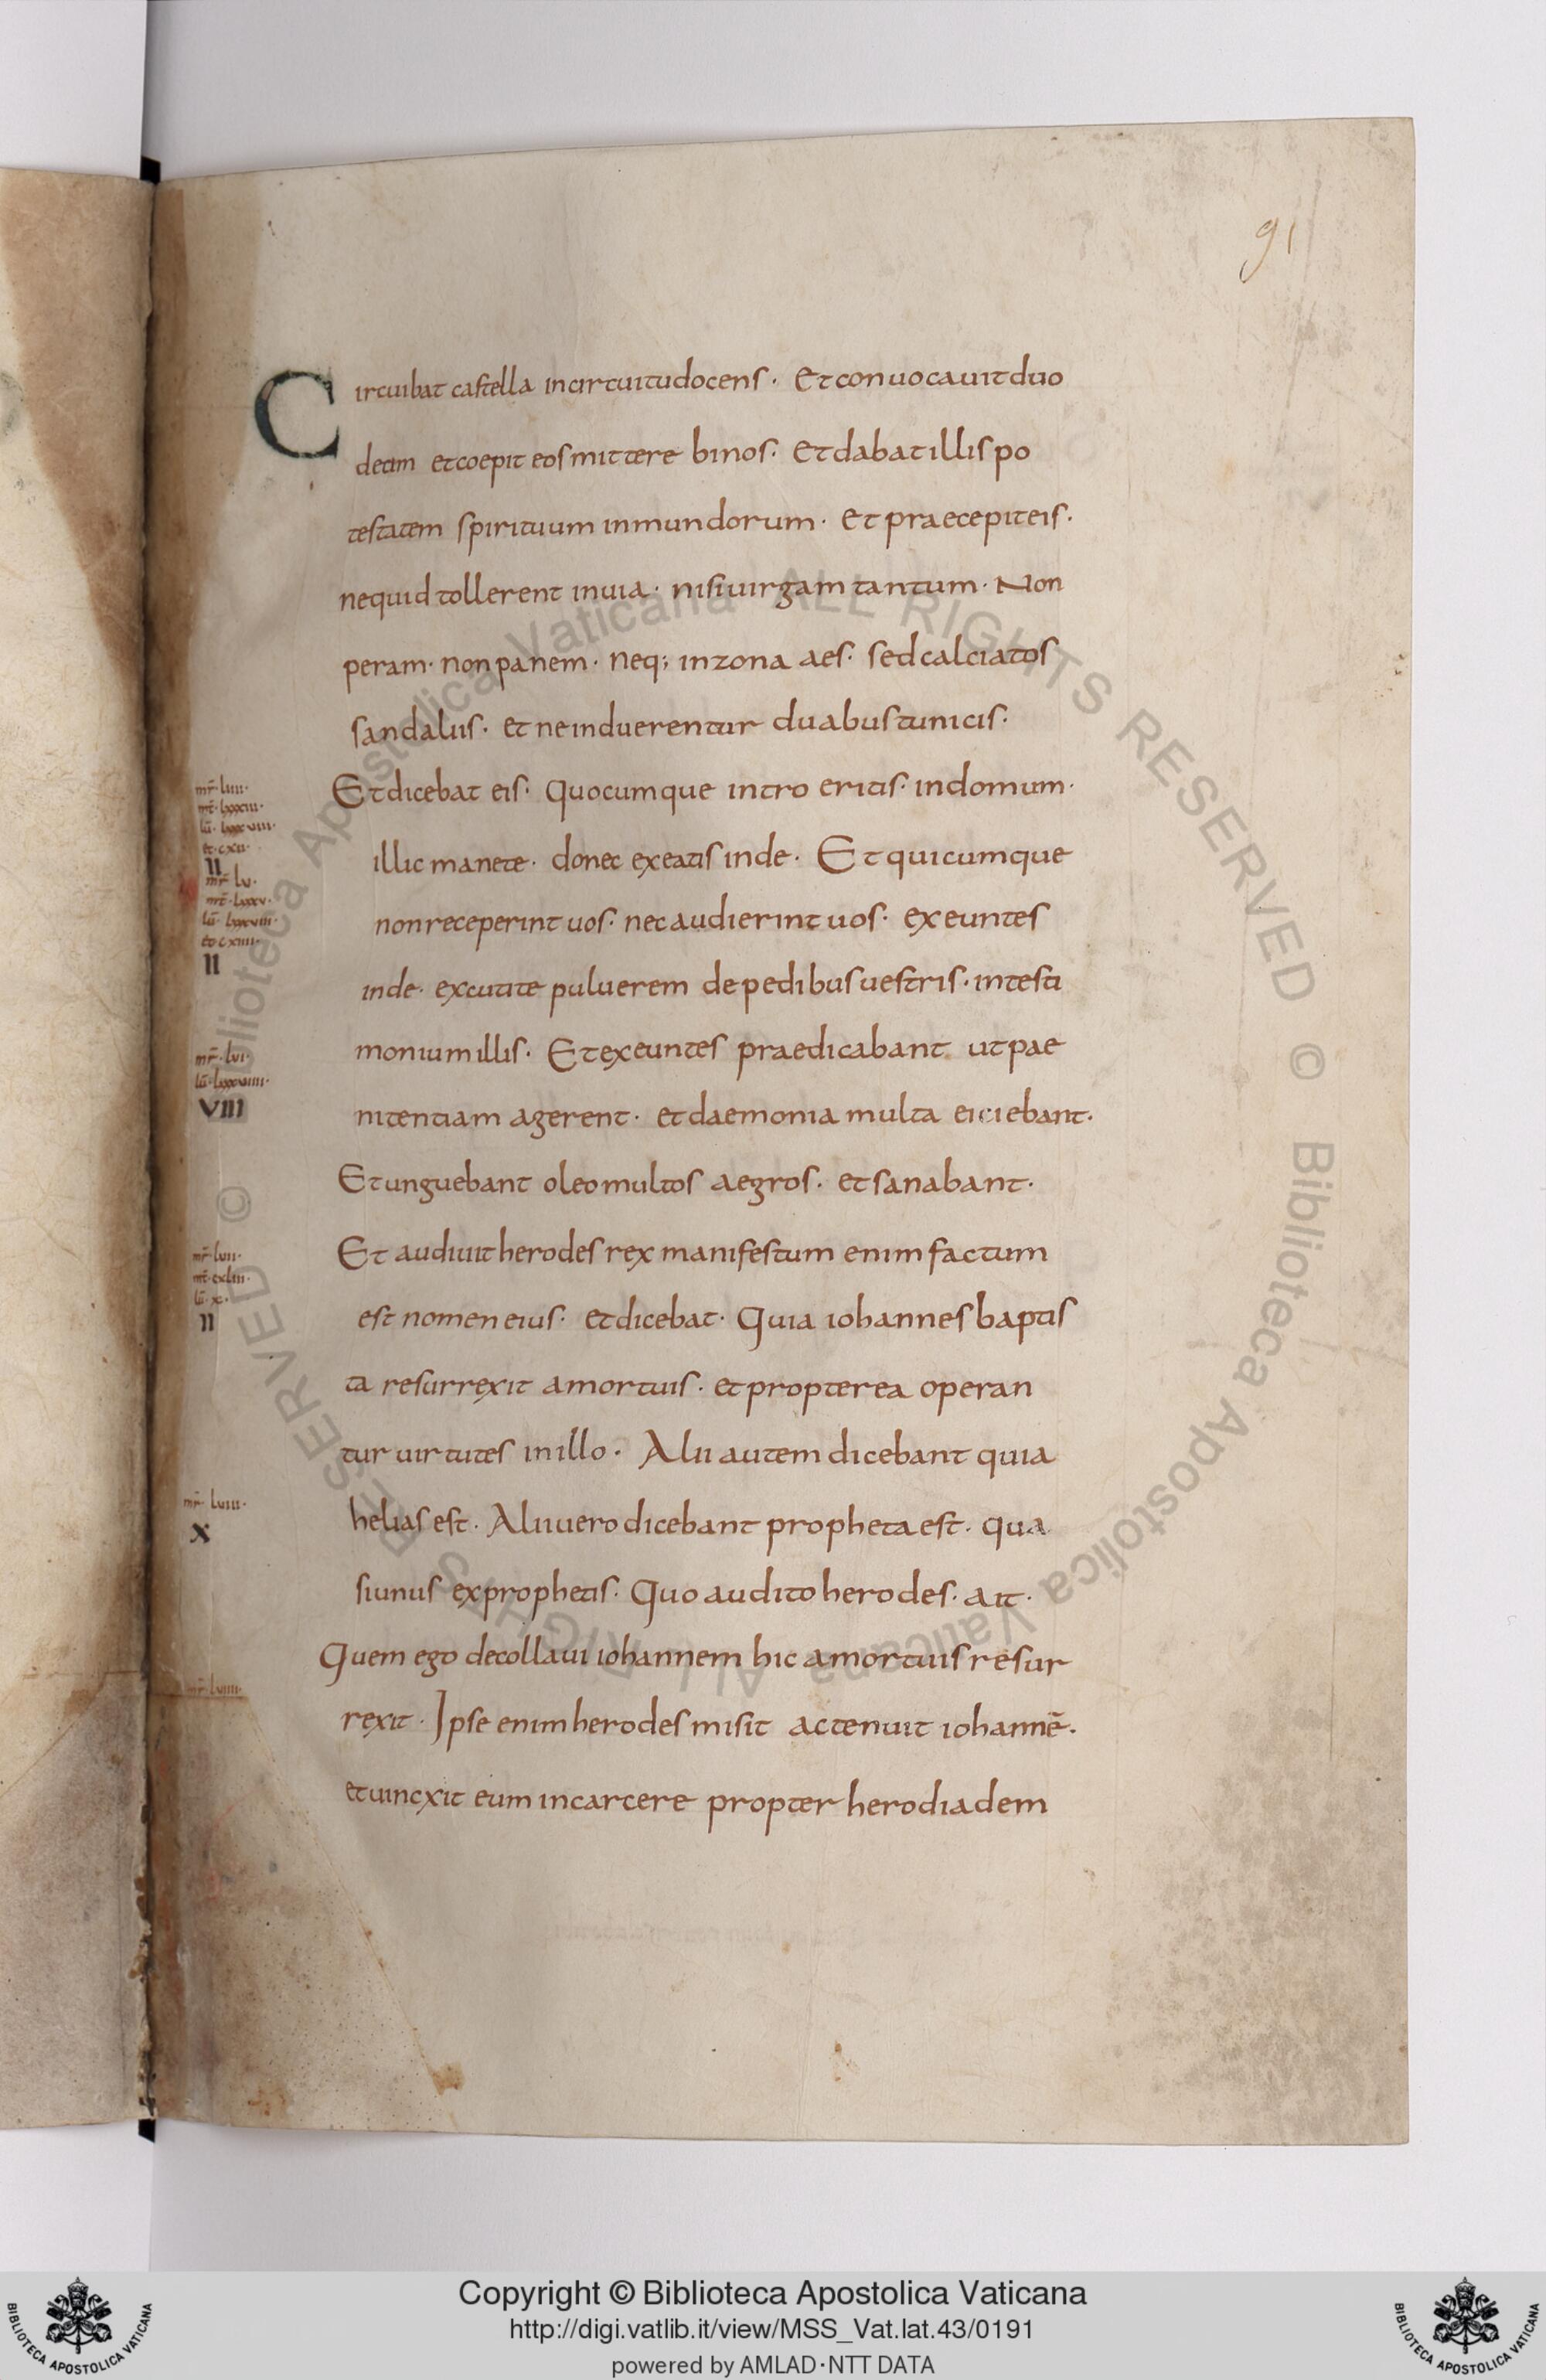 91
Circuibat castella incircuitudocens· Etconuocauitduo
decim etcoepit eos mittere binos· Etdabat illis po
testatem spirituum inmundorum· Et praecepit eis·
nequid tollerent inuia· nisi uirgam tantum· Non
peram· non panem· neq; inzona aes· sed calciatos
sandaliis· et ne induerentur duabus tunicis·
Et dicebat eis· Quocumque intro eritis· indomum·
illic manete· donec exeatis inde· Et quicumque
non receperint uos· nec audierint uos· exeuntes
inde· excutite puluerem de pedibus uestris· intesti
monium illis· Et exeuntes praedicabant ut pae
nitentiam agerent· et daemonia multa eiciebant·
Et unguebant oleo multos aegros· et sanabant·
Et audiuit herodes rex manifestum enim factum
est nomen eius· et dicebat· Quia iohannes baptis
ta resurrexit amortuis· et propterea operan
tur uirtutes in illo· Alii autem dicebant quia
helias est· Alii uero dicebant propheta est· qua
si unus ex prophetis· Quo audito herodes· ait·
Quem ego decollaui iohannem hic amortuis resur
rexit· Ipse enim herodes misit ac tenuit iohannē·
et uincxit eum in carcere propter herodiadem
mr̄· liiii·
lū· lxxxviii·
et· cxii·
II
mr̄· lv·
mt̄· lxxxv·
lū· lxxxviii·
II
mr̄· lvi·
lū· lxxxviiii·
VIII
mr̄· lvii·
mt̄· cxliii·
lū· xc·
II
mr̄· lviii·
X
mr̄· lviiii·
© Biblioteca Apostolica Vaticana ALL RIGHTS RESERVED © Biblioteca Apostolica Vaticana ALL RIGHTS RESERVED
BIBLIOTECA APOSTOLICA VATICANA
Copyright © Biblioteca Apostolica Vaticana
http://digi.vatlib.it/view/MSS_Vat.lat.43/0191
powered by AMLAD·NTT DATA
BIBLIOTECA APOSTOLICA VATICANA